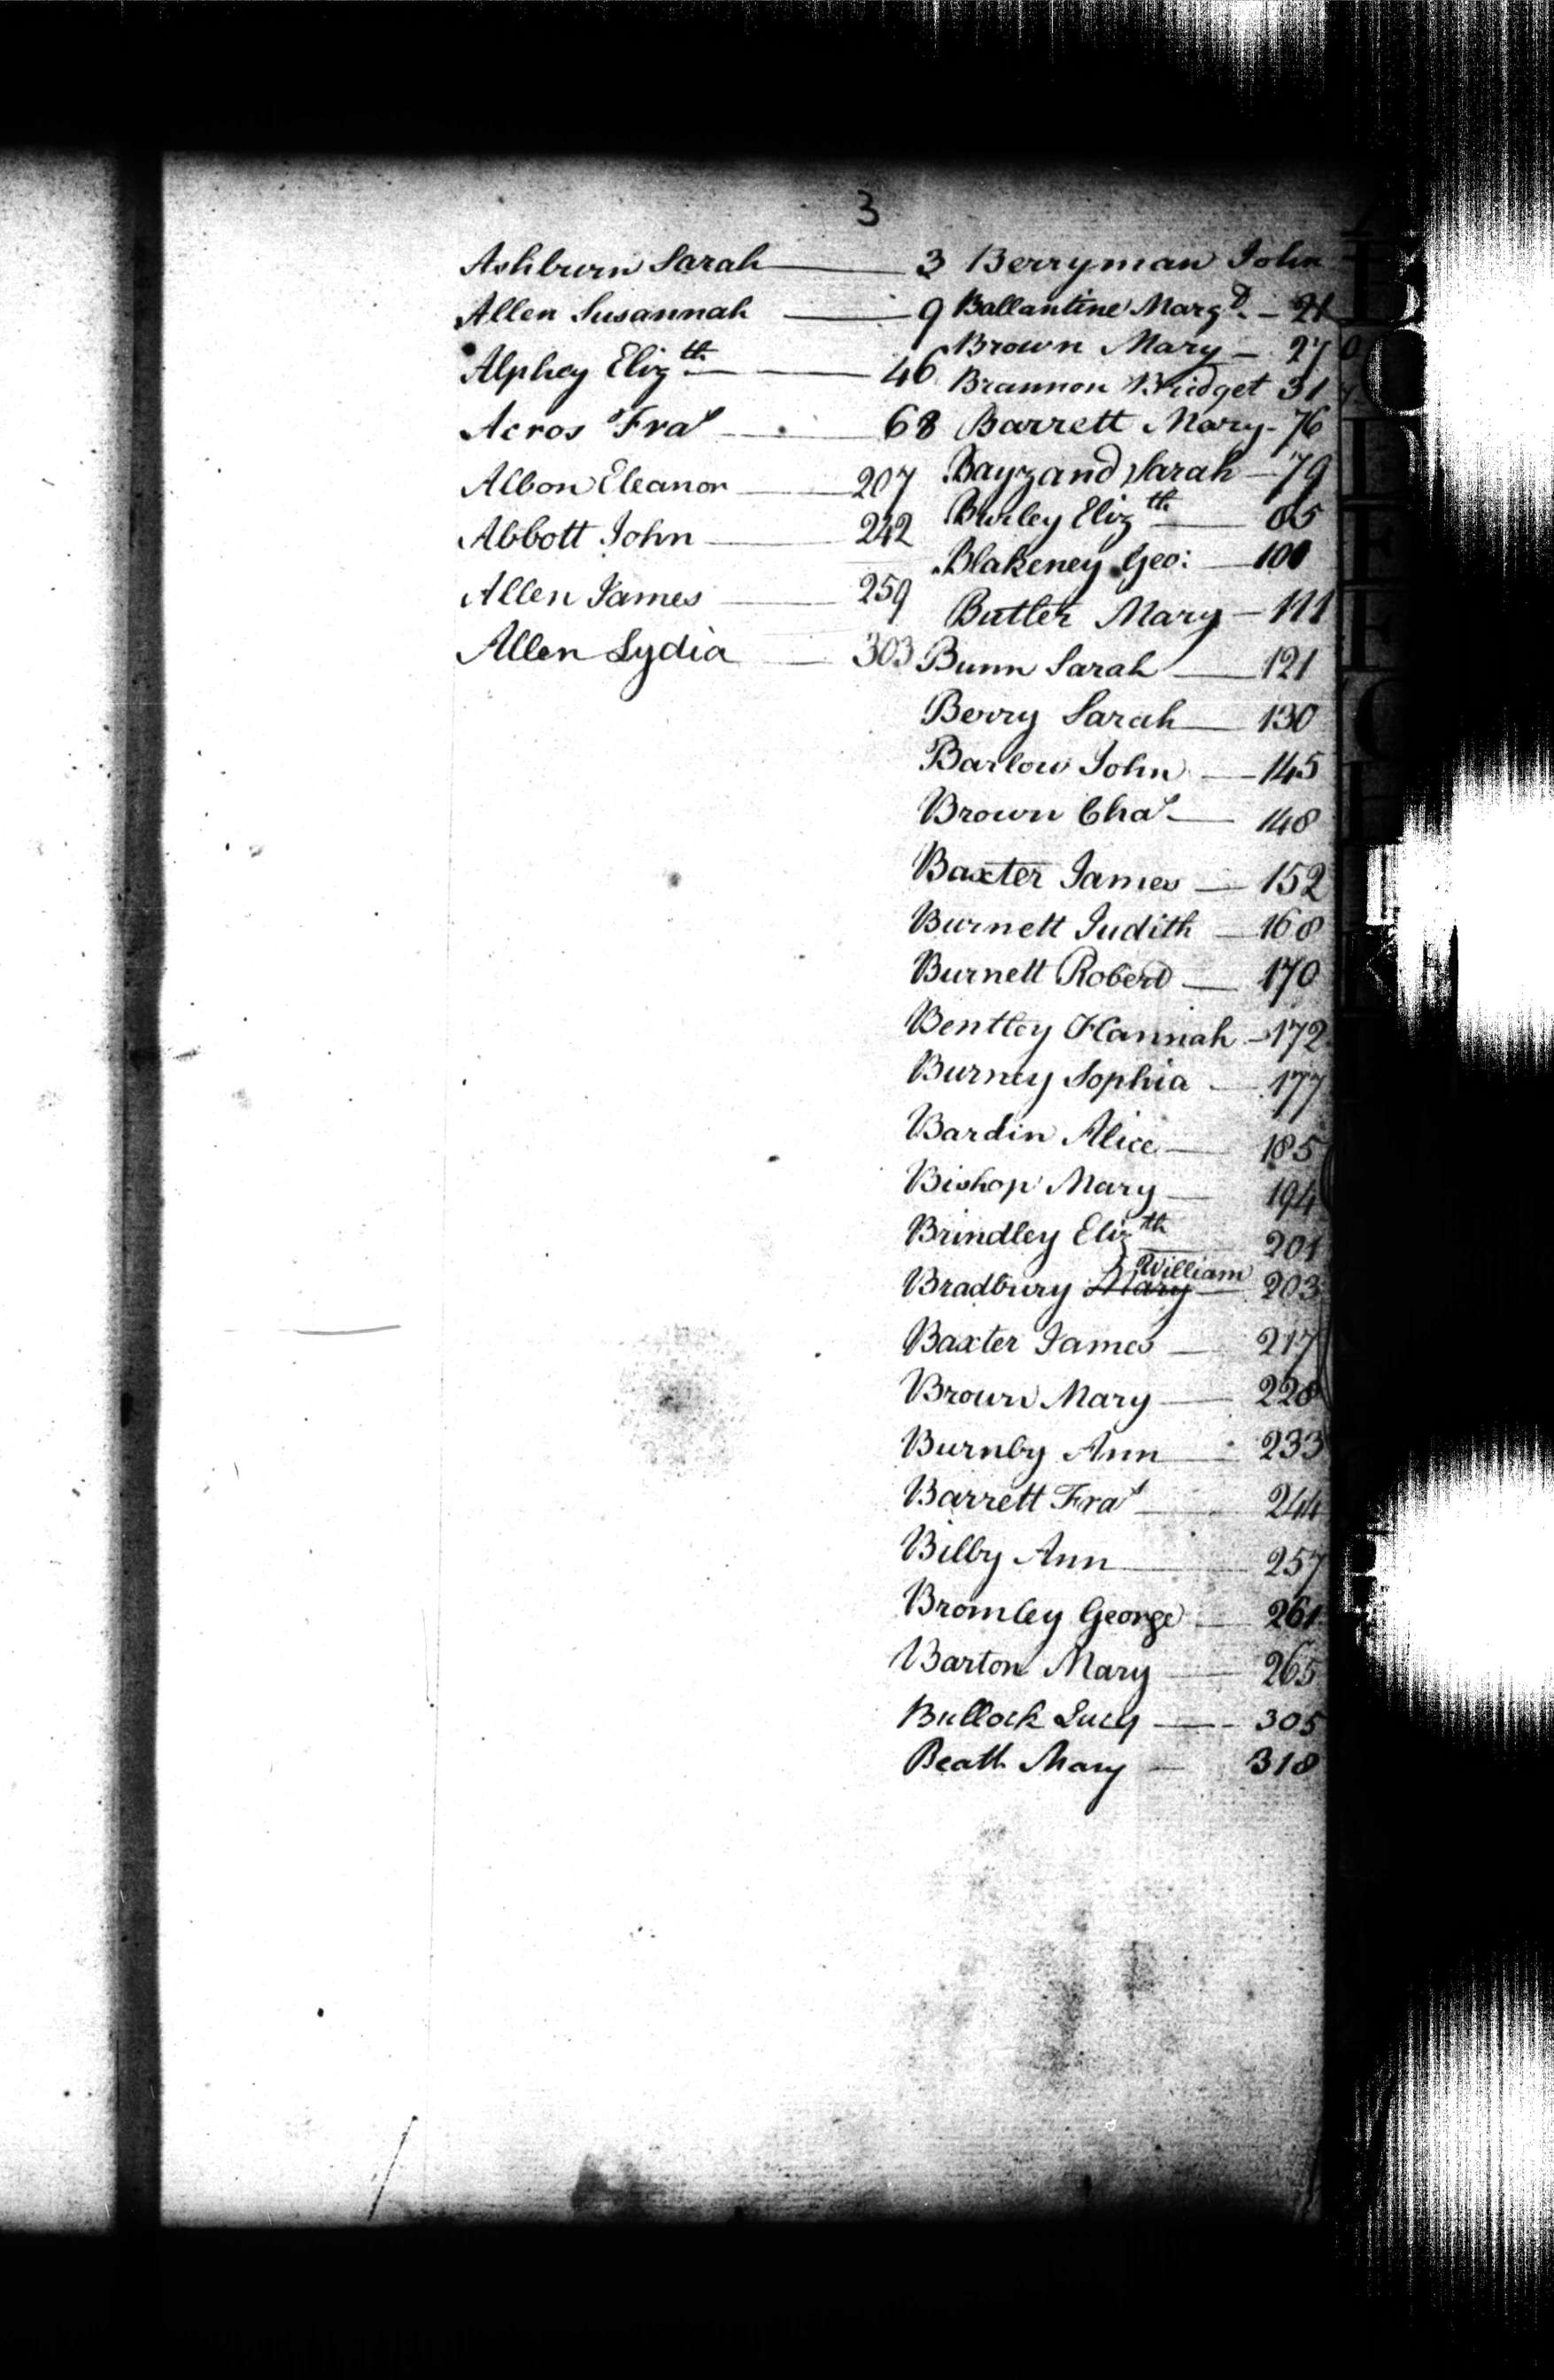 3
Ashburn Sarah 3
Allen Susannah 9
Alphey Eliz.th 46
Acros Fra.s 68
Albon Eleanor 207
Abbott John 242
Allen James 259
Allen Lydia 303
Berryman John
Ballantine Marg.t 21
Brown Mary 27
Brannon Bridget 31
Barrett Mary 76
Bayzand Sarah 79
Burley Eliz.th 85
Blakeney Geo: 100
Butler Mary 111
Bunn Sarah 121
Berry Sarah 130
Barlow John 145
Brown Cha.s 148
Baxter James 152
Burnett Judith 168
Burnett Robert 170
Bentley Hannah 172
Burney Sophia 177
Bardin Alice 185
Bishop Mary 194
Brindley Eliz.th 201
Bradbury Mary William 203
Baxter James 217
Brown Mary 228
Burnby Ann 233
Barrett Fra.s 244
Bilby Ann 257
Bromley George 261
Barton Mary 265
Bullock Lucy 305
Beath Mary 318